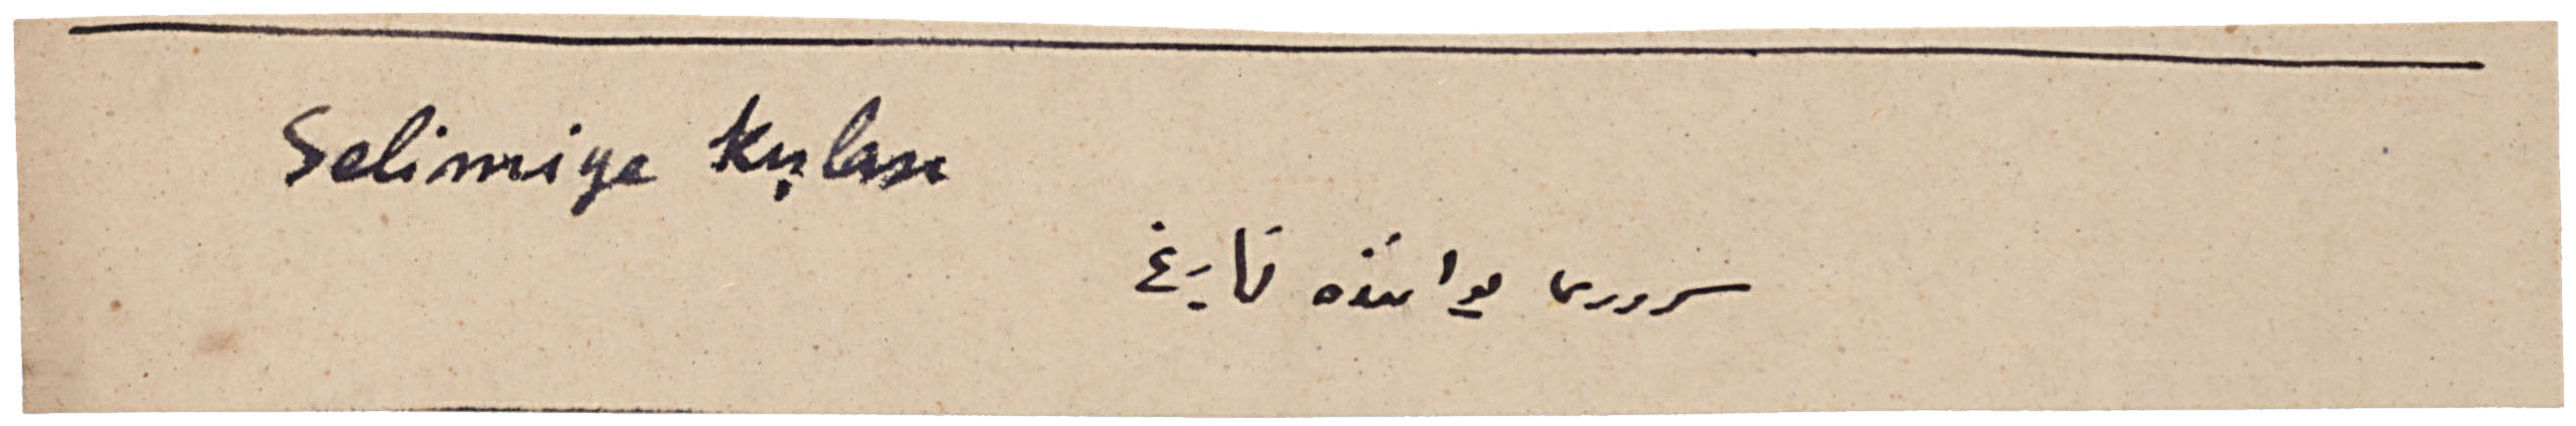 Selimiye Kışlası
سروری دیواننده تاریخ